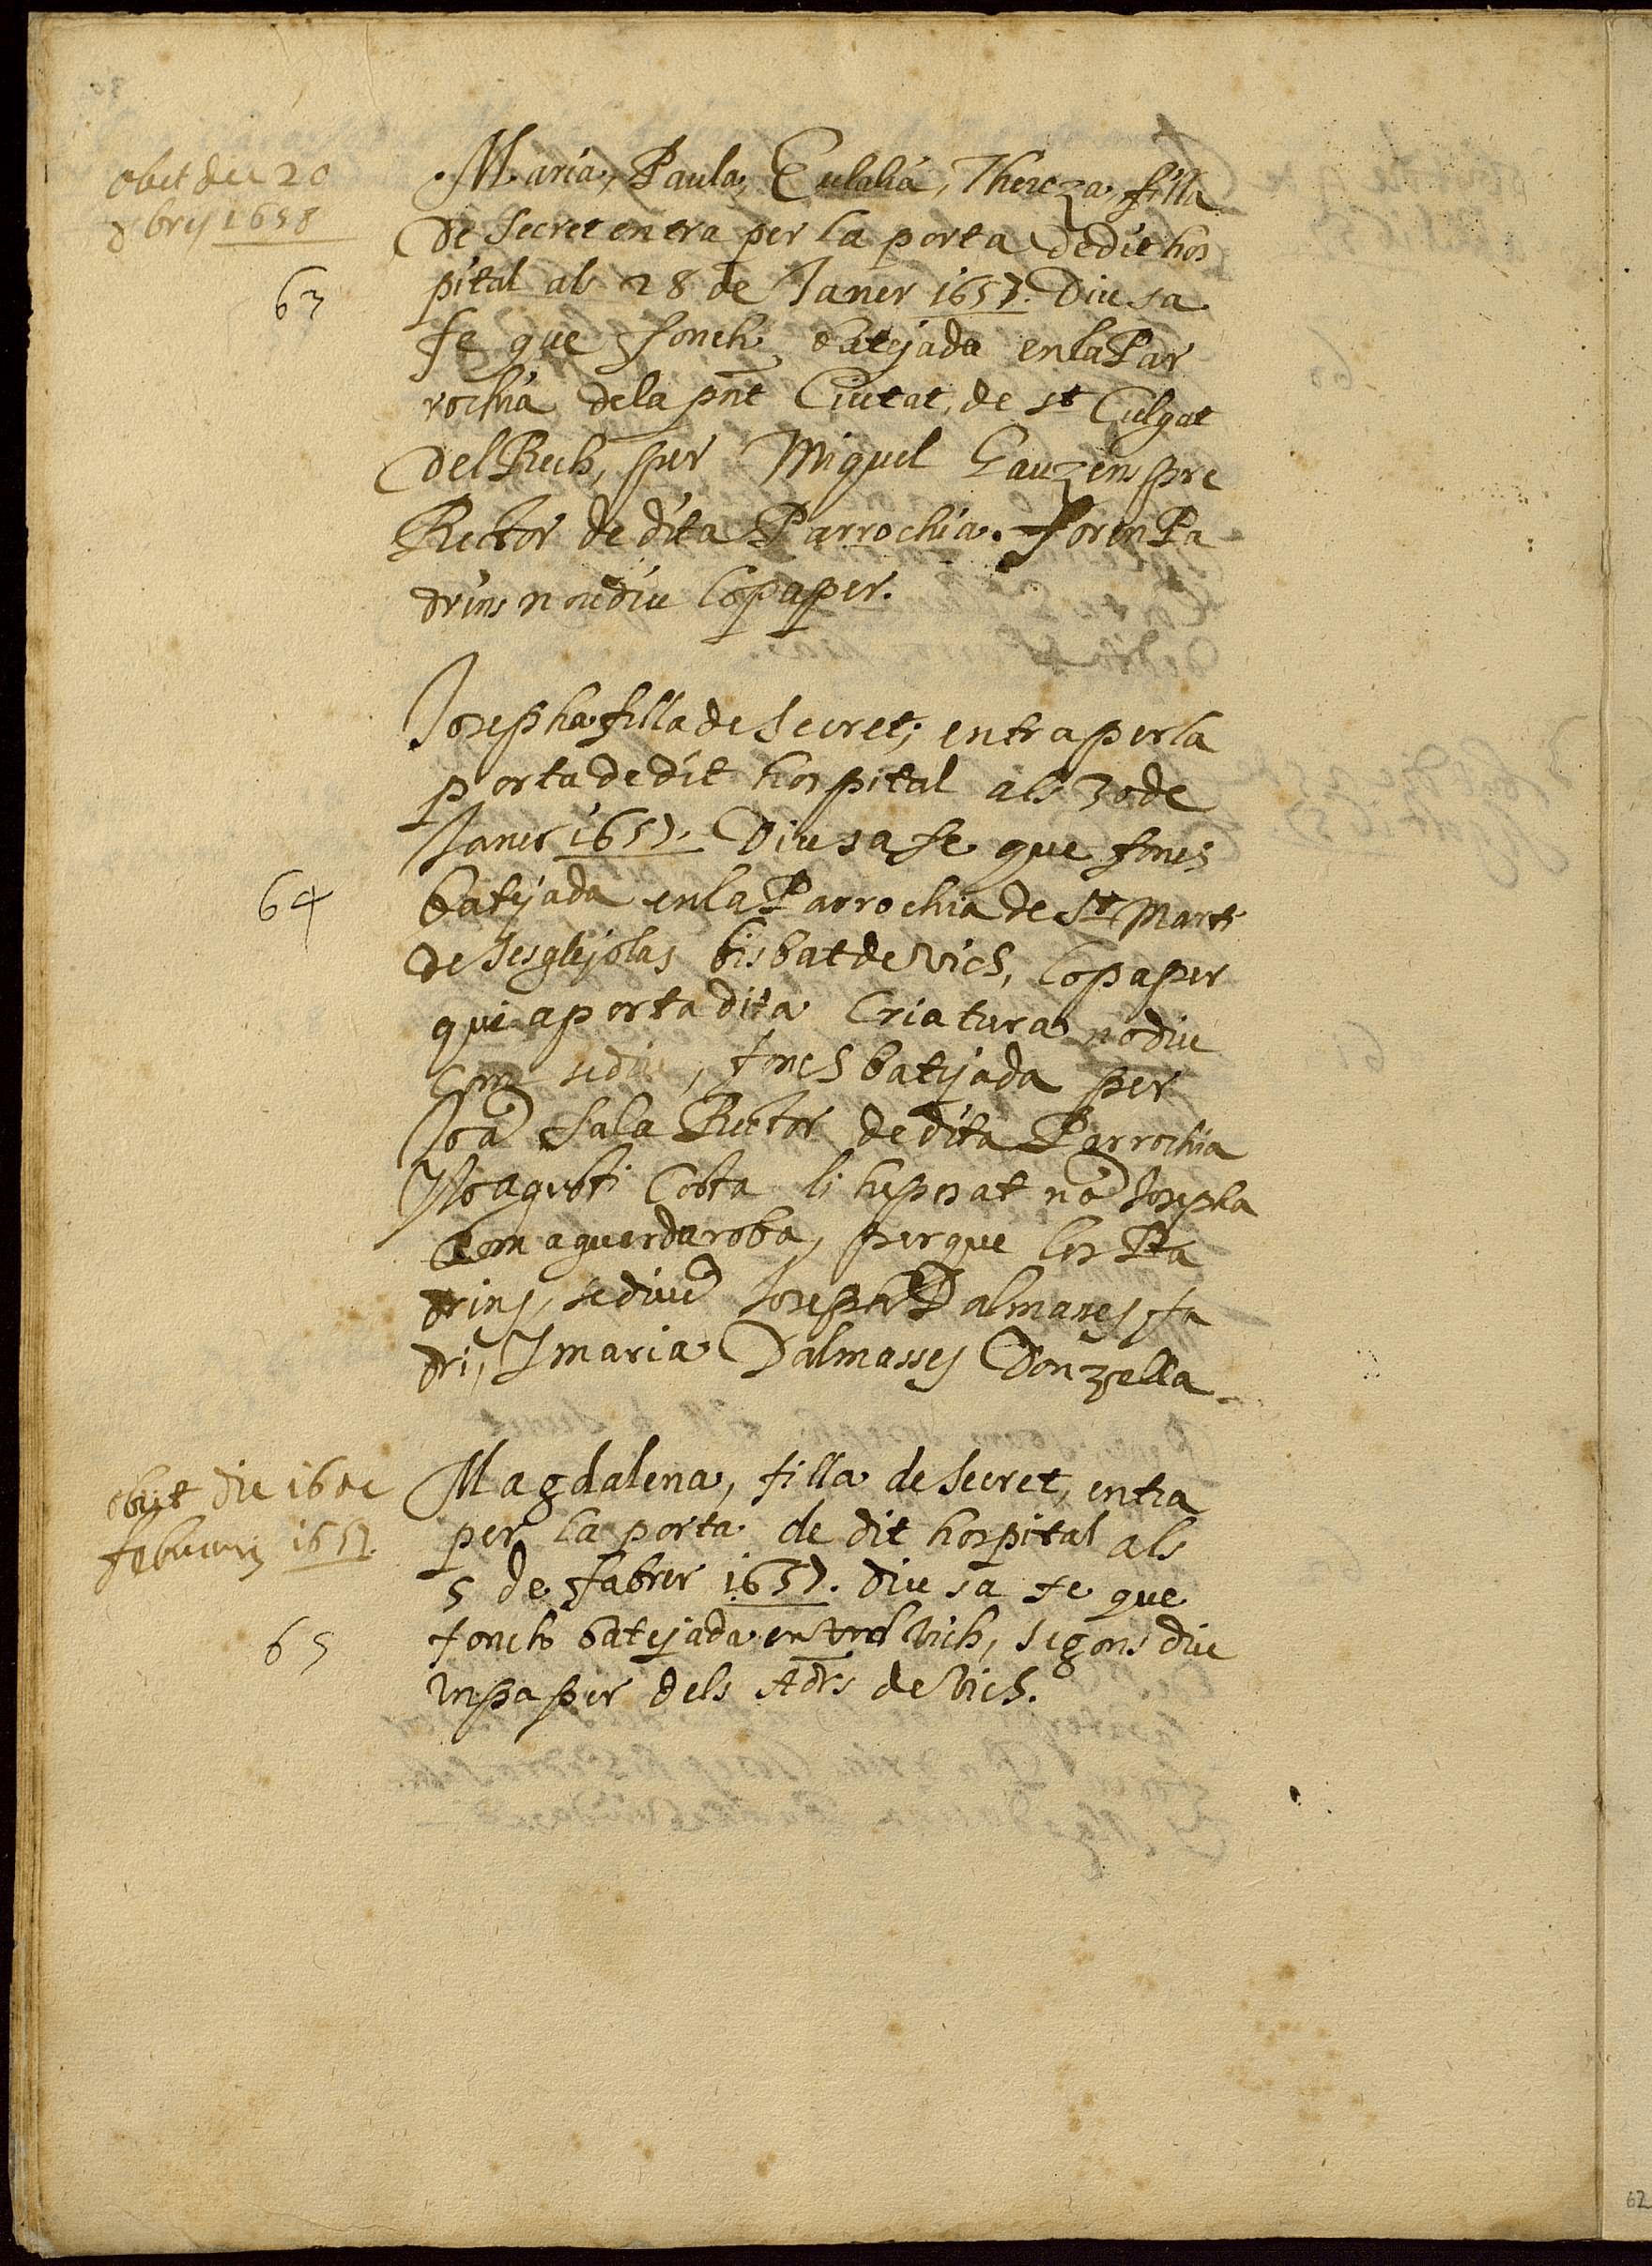 obit die 20
8 bris 1658
63
Maria, Paula, Eulalia, Thereza, filla
de secret entra per la porta de dit hos
pital als 28 de Janer 1657. Diu sa
fe que fonch batejada en la Par
rochia de la pñt Ciutat, de st Culgat
del Rech, per Miquel Gauzens pre
Rector de dita Parrochia. foren Pa
drins nou diu lo paper.
Josepha filla de secret; entra per la
porta de dit hospital als 30 de
Janer 1657. Diu sa fe que fonch
64
batejada en la Parrochia de st Marti
de sesglejolas bisbat de Vich, lo paper
qui aporta dita Criatura no diu
com se diu, fonch batejada per
Joã Sala Rector de dita Parrochia
Jo agusti Costa li he posat nõ Josepha
com a guardaroba, perque los Pa
drins, se diuẽ Joseph Dalmases fa
dri, J maria Dalmasses Donzella
obijt die 16 de
februarij 1657.
65
Magdalena, filla de secret, entra
per la porta de dit hospital als
5 de fabrer 1657. diu sa fe que
fonch batejada en Vich, segons diu
un paper dels Adrs de Vich.
62